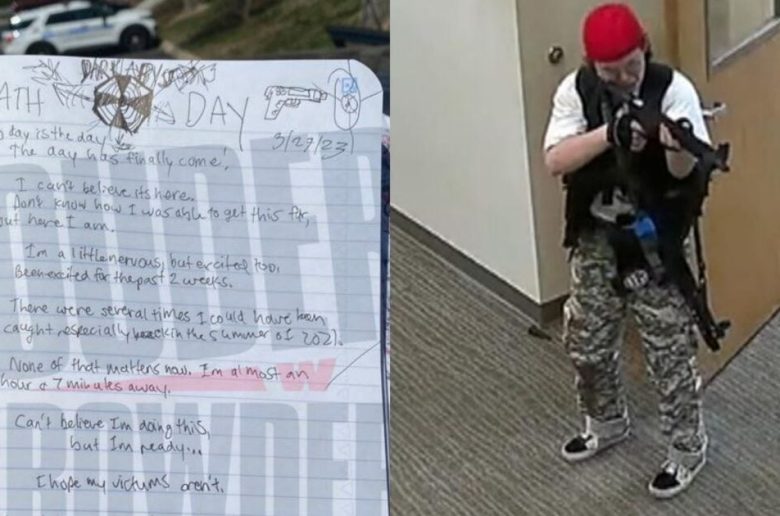 DARK ABYSS
ATH DAY
3/27/23
day is the day
The day has finally come!
I can't believe its here.
Don't know how I was able to get this far,
but here I am.
I'm a little nervous, but excited too.
Been excited for the past 2 weeks.
There were several times I could have been
caught, especially back in the summer of 2021.
None of that matters now. I'm almost an
hour & 7 minutes away.
Can't believe I'm doing this,
but I'm ready...
I hope my victims aren't.
OUDER
W
ROWDER